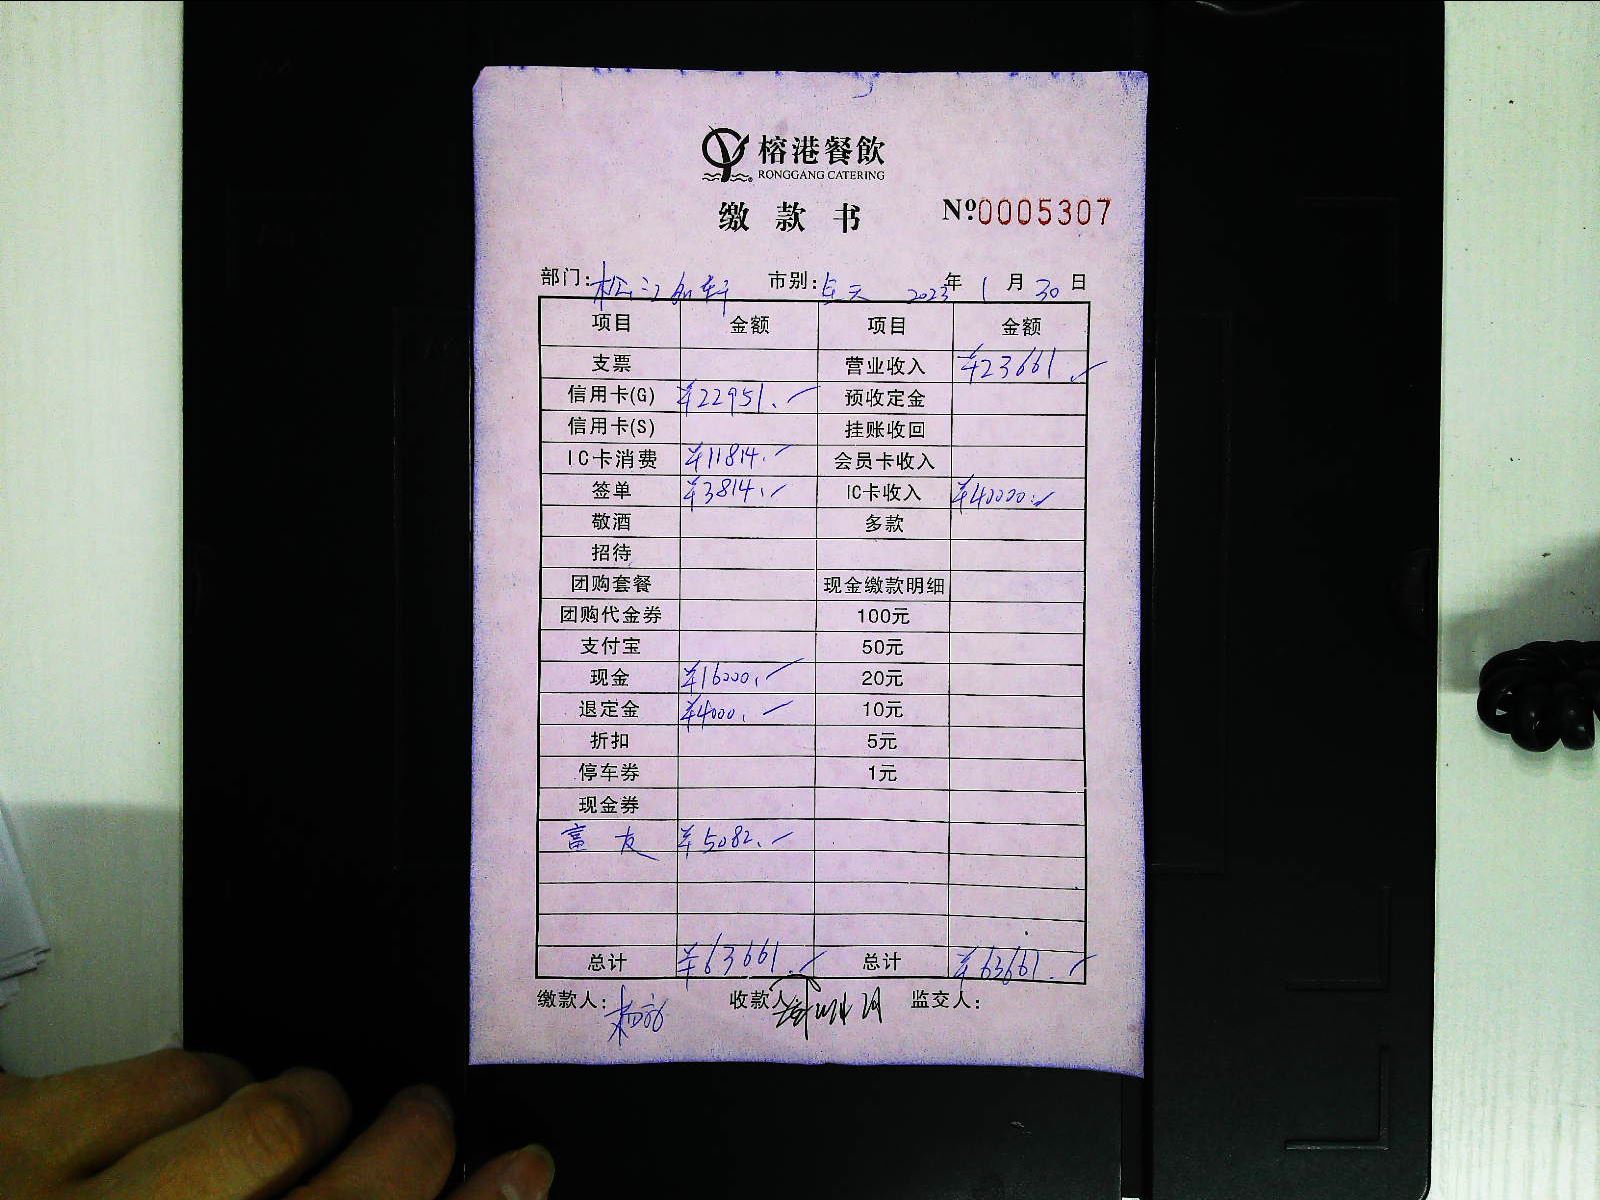 榕港餐飲
RONGGANG CATERING
缴款书 Nº0005307
部门: 松江如轩 市别: 全天 2023年1月30日
项目 金额 项目 金额
支票 营业收入 ¥23661.
信用卡(G) ¥22951. 预收定金
信用卡(S) 挂账收回
IC卡消费 ¥11814. 会员卡收入
签单 ¥3814. IC卡收入 ¥40000.
敬酒 多款
招待
团购套餐 现金缴款明细
团购代金券 100元
支付宝 50元
现金 ¥16000. 20元
退定金 ¥4000. 10元
折扣 5元
停车券 1元
现金券
富友 ¥5082.
总计 ¥63661. 总计 ¥63661.
缴款人: 收款人: 监交人: